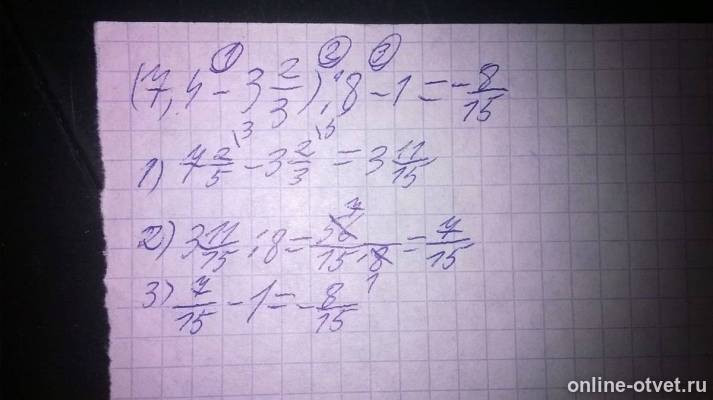 ① ② ③
(7,4 - 3 2/3) : 8 - 1 = - 8/15
1) 7 2/5 \3 - 3 2/3 \5 = 3 11/15
2) 3 11/15 : 8 = 56 7/15 · 8 1 = 7/15
3) 7/15 - 1 = - 8/15
online-otvet.ru